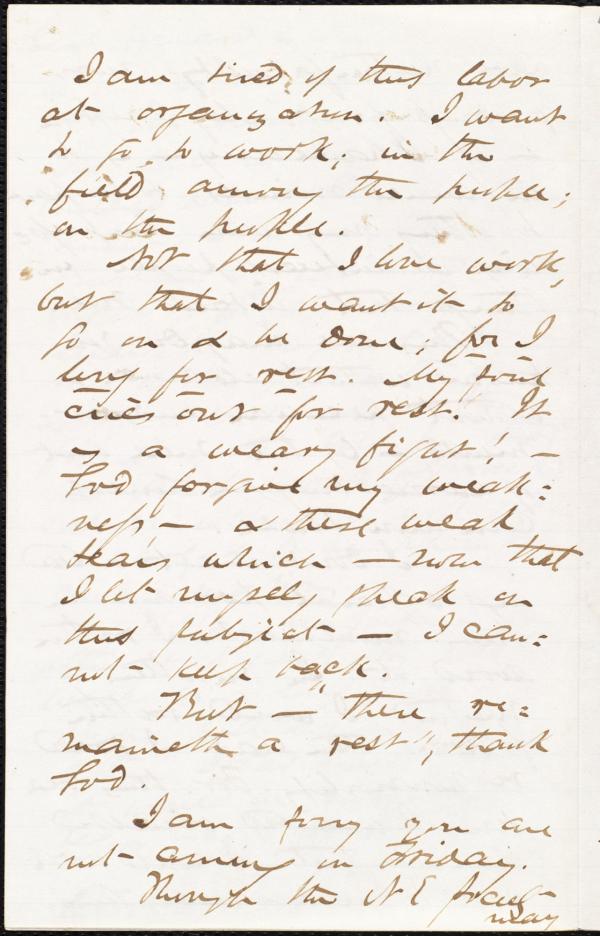 I am tired of this labor
at organization. I want
to go to work; in the
field among the people;
on the people.
Not that I love work,
but that I want it to
go on & be done; for I
long for rest. My soul
cries out for rest! It
is a weary fight! –
God forgive my weak=
ness – & these weak
tears which – now that
I let myself speak on
this subject – I can=
not keep back.
But – "there re=
maineth a rest", thank
God.
I am sorry you are
not coming on Friday.
Though the N E
may